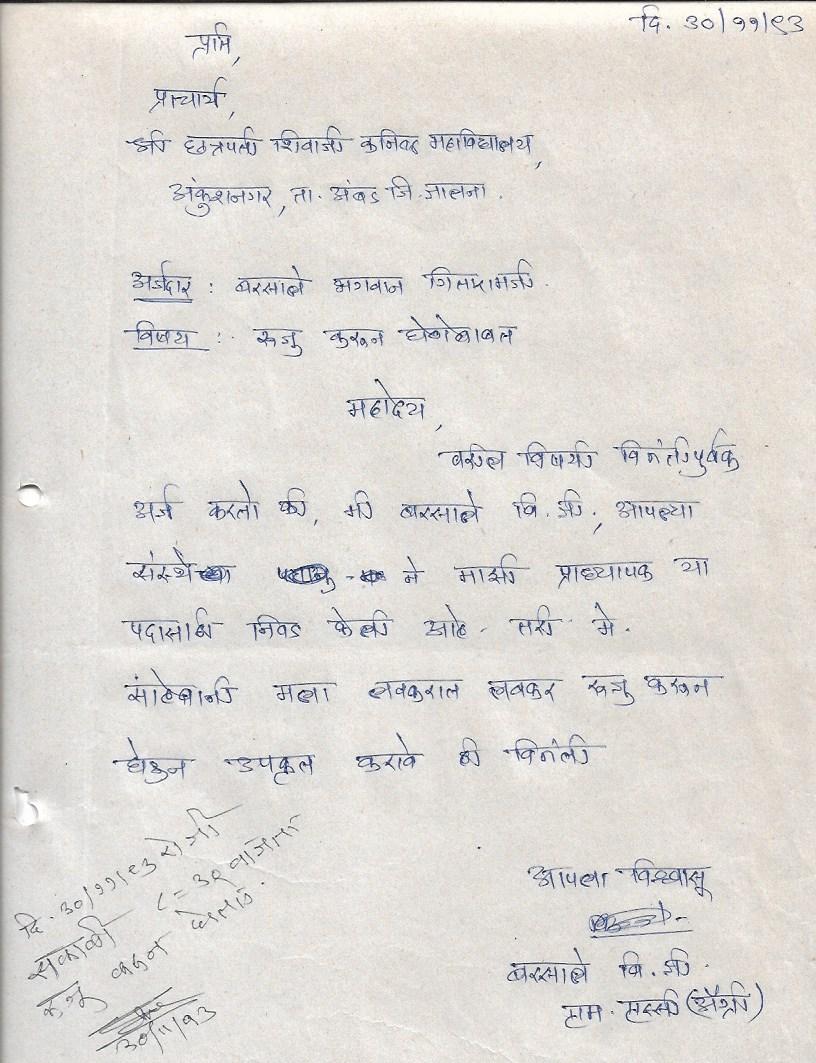 दि. ३०/११/९३
प्रति,
प्राचार्य,
श्री छत्रपती शिवाजी कनिष्ठ महाविद्यालय,
अंकुशनगर, ता. अंबड जि. जालना.
अर्जदार : बरसाले भगवान
विषय : रुजु करून घेणेबाबत
महोदय,
वरील विषयी विनंतीपुर्वक
अर्ज करतो की, मी बरसाले बि. जी., आपल्या
संस्थे ने माझी प्राध्यापक या
पदासाठी निवड केली आहे. तरी मे.
सांहेबानी मला लवकरात लवकर रुजु करून
घेऊन उपकृत करावे ही विनंती
आपला विश्वासू
बरसाले बि. जी.
एम. एस्सी (अॅग्री)
दि. ३०/११/९३ रोजी
सकाळी ८=३० वाजता
रुजू करून घेतले.
30/11/93